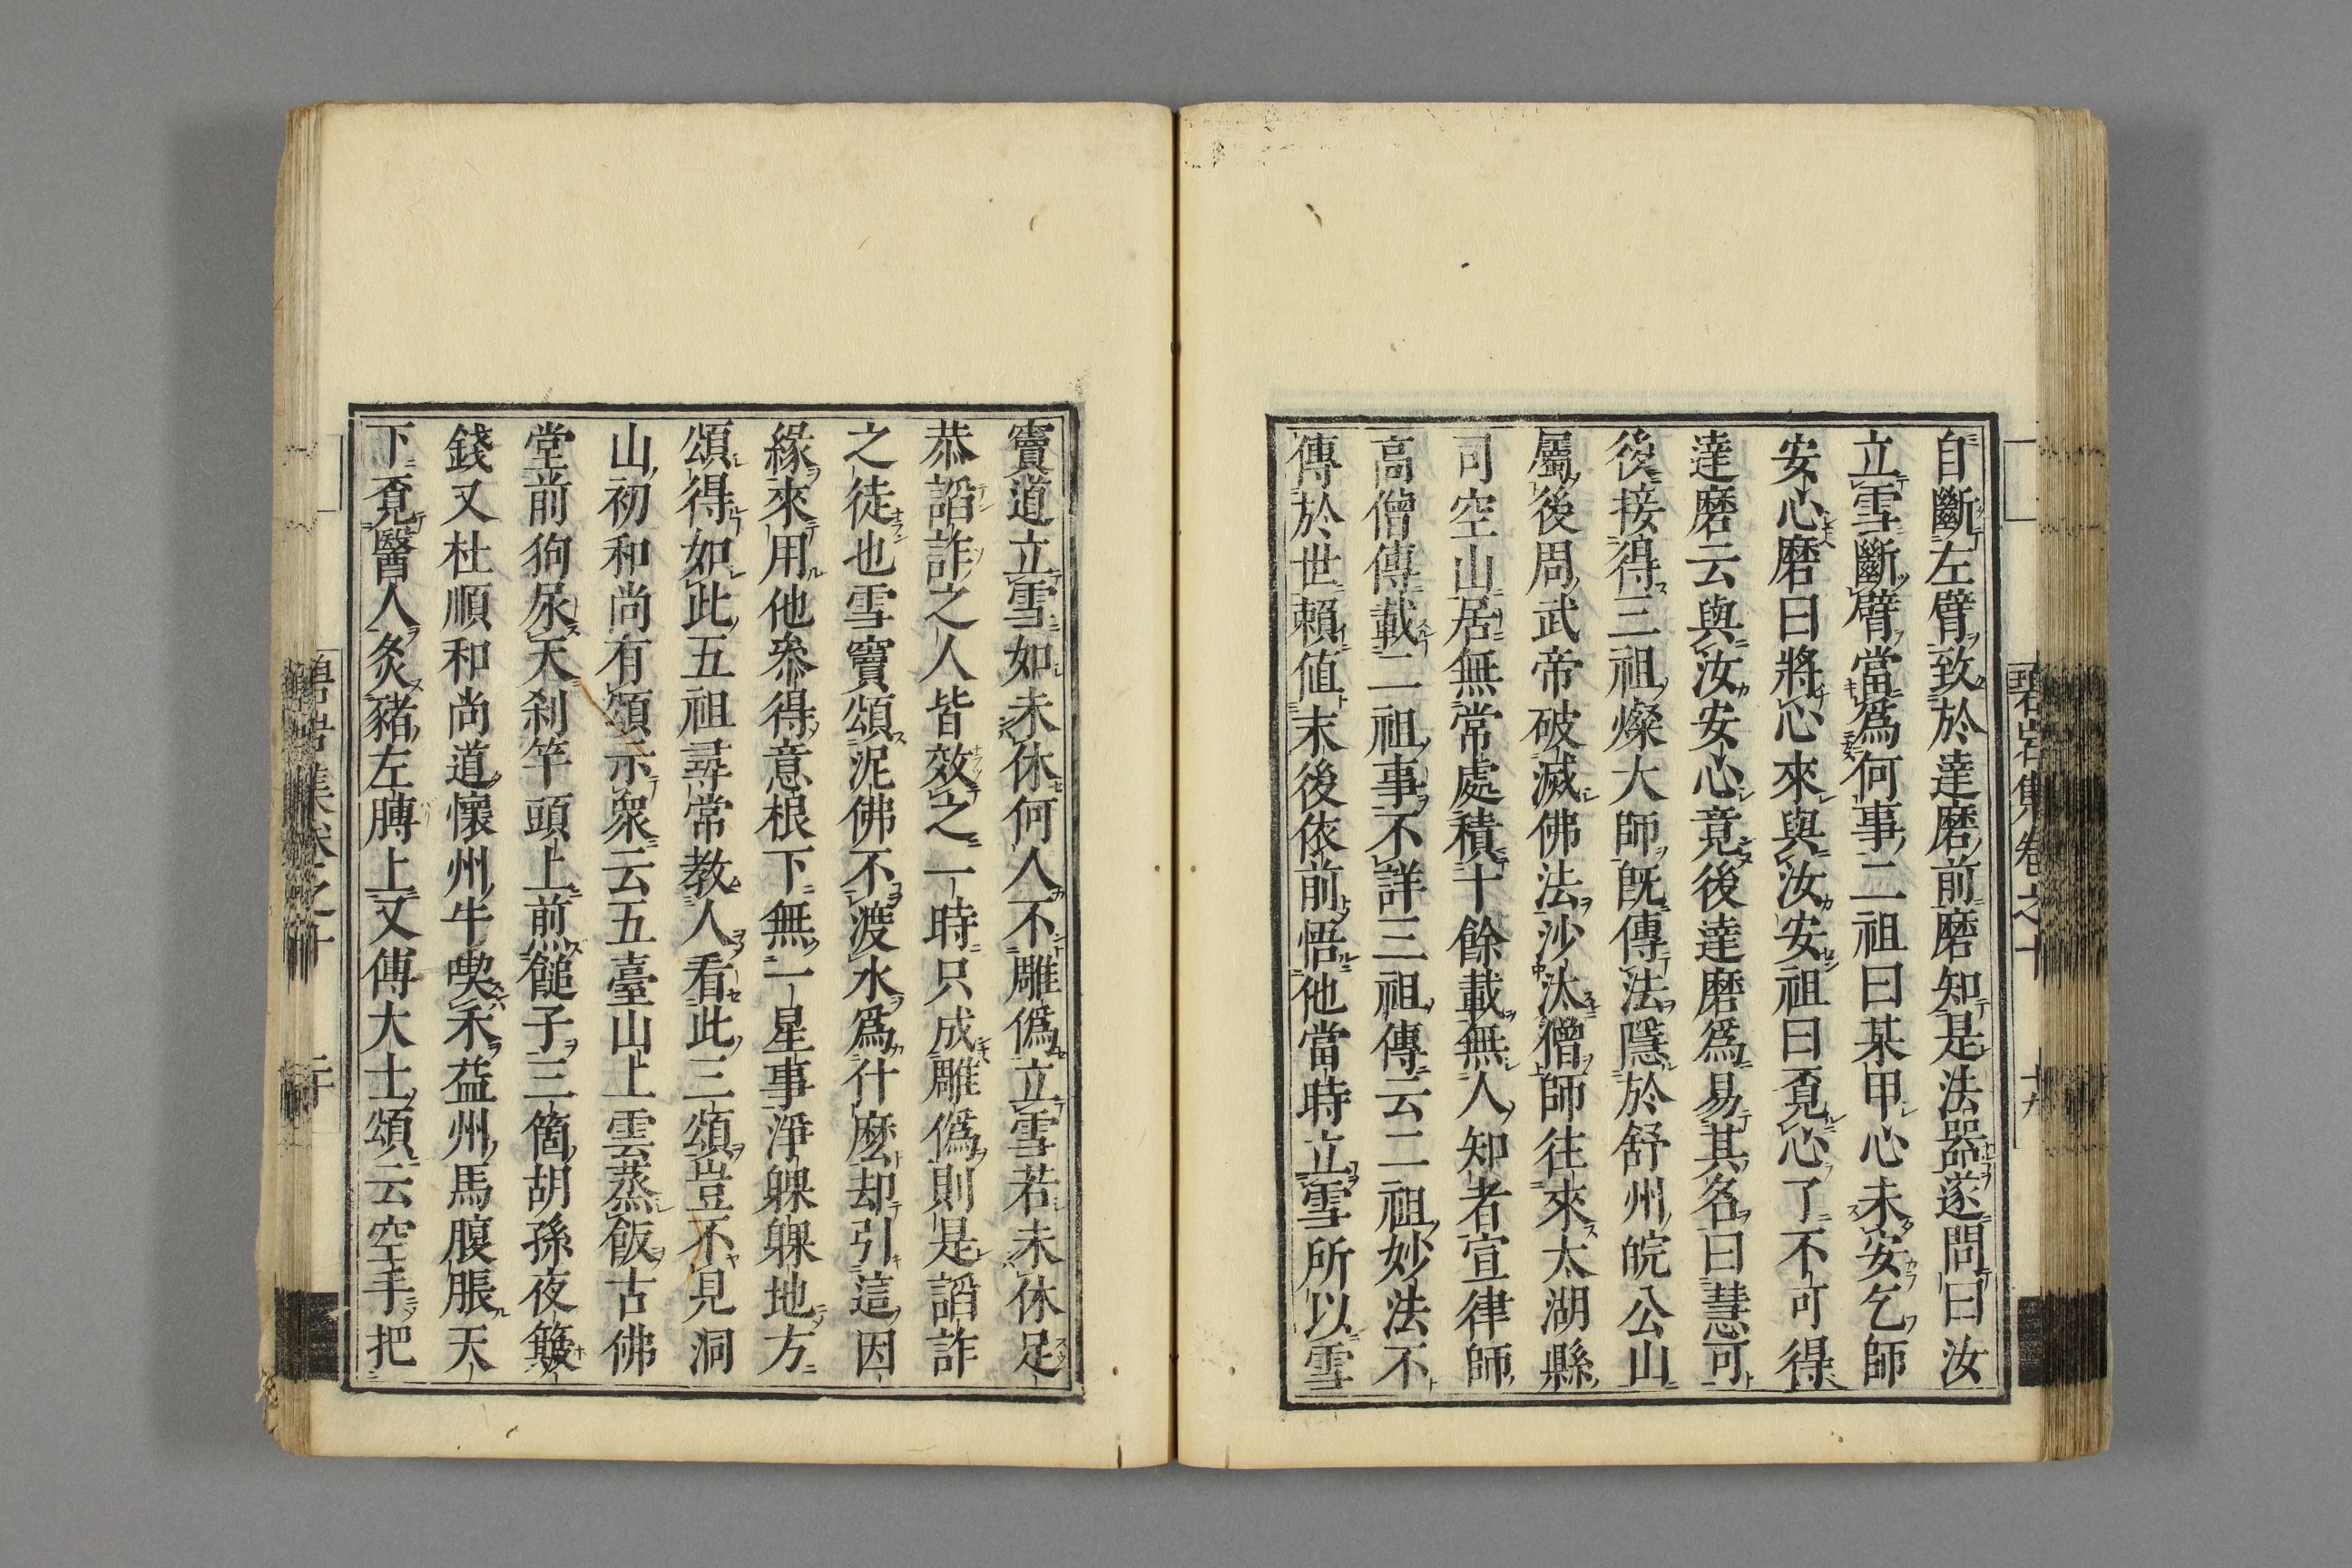 自斷左臂致於達磨前磨知是法器遂問曰汝
立雪斷臂當爲何事二祖曰某甲心未安乞師
安心磨曰將心來與汝安祖曰覔心了不可得
達磨云與汝安心竟後達磨爲易其名曰慧可
後接得三祖燦大師既傳法隱於舒州皖公山
屬後周武帝破滅佛法沙汰僧師往來太湖縣
司空山居無常處積十餘載無人知者宣律師
高僧傳載二祖事不詳三祖傳云二祖妙法不
傳於世賴值末後依前悟他當時立雪所以雪
竇道立雪如未休何人不雕僞立雪若未休足
恭謟詐之人皆效之一時只成雕僞則是謟詐
之徒也雪竇頌泥佛不渡水爲什麽却引這因
緣來用他叅得意根下無一星事淨躶躶地方
頌得如此五祖尋常教人看此三頌豈不見洞
山初和尚有頌示衆云五臺山上雲蒸飯古佛
堂前狗尿天刹竿頭上煎䭔子三箇胡孫夜簸
錢又杜順和尚道懷州牛喫禾益州馬腹脹天
下覔醫人灸豬左膊上又傅大士頌云空手把
碧岩集卷之十
十九